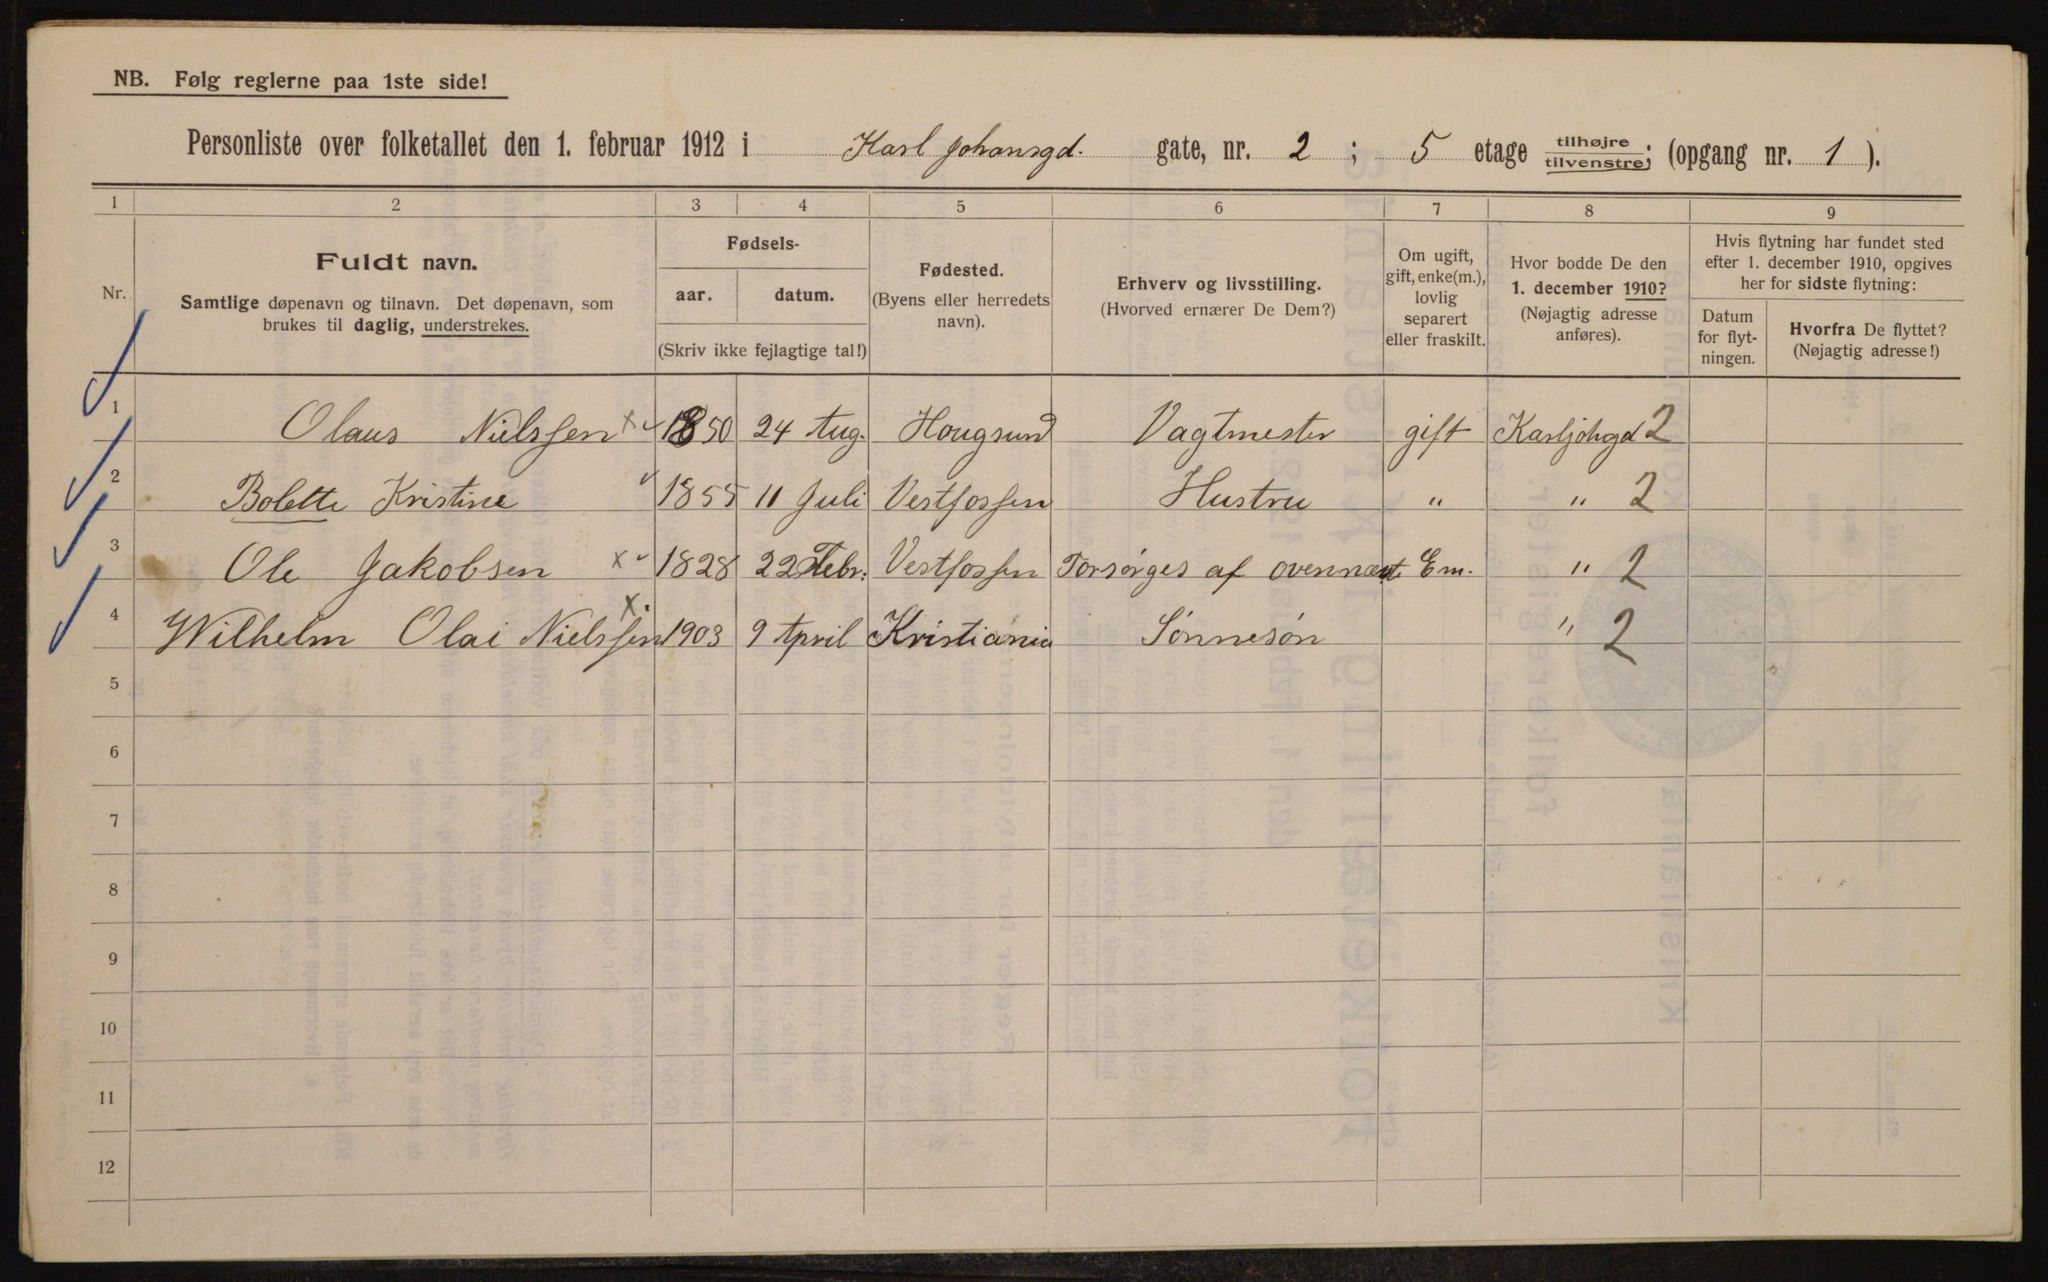 NB. Følg reglerne paa 1ste side!
Personliste over folketallet den 1. februar 1912 i Karl Johansgd. gate, nr. 2 ; 5 etage tilhøjre tilvenstre ; (opgang nr. 1 ).
1 2 3 4 5 6 7 8 9
Nr.
Fuldt navn.
Samtlige døpenavn og tilnavn. Det døpenavn, som
brukes til daglig, understrekes.
Fødsels-
aar. datum.
(Skriv ikke fejlagtige tal!)
Fødested.
(Byens eller herredets
navn).
Erhverv og livsstilling.
(Hvorved ernærer De Dem?)
Om ugift,
gift, enke(m.),
lovlig
separert
eller fraskilt.
Hvor bodde De den
1. december 1910?
(Nøjagtig adresse
anføres).
Hvis flytning har fundet sted
efter 1. december 1910, opgives
her for sidste flytning:
Datum
for flyt-
ningen.
Hvorfra De flyttet?
(Nøjagtig adresse!)
1 Olaus Nielssen x 1850 24 Aug. Hougsund Vagtmester gift Karljohgd 2
2 Bolette Kristine 1855 11 Juli Vestfossen Hustru " " 2
3 Ole Jakobsen x 1828 22 Febr. Vestfossen Forsørges af ovennævnte Em. " 2
4 Wilhelm Olai Nielssen x 1903 9 April Kristiania Sønnesøn " 2
5
6
7
8
9
10
11
12